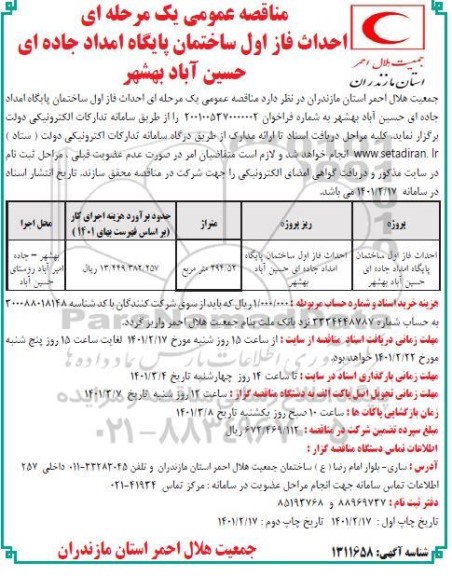 مناقصه عمومی یک مرحله ای
احداث فاز اول ساختمان پایگاه امداد جاده ای
حسین آباد بهشهر
جمعیت هلال احمر
استان مازندران
جمعیت هلال احمر استان مازندران در نظر دارد مناقصه عمومی یک مرحله ای احداث فاز اول ساختمان پایگاه امداد
جاده ای حسین آباد بهشهر به شماره فراخوان ۲۰۰۱۰۰۵۳۷۰۰۰۰۰۰۲ را از طریق سامانه تدارکات الکترونیکی دولت
برگزار نماید. کلیه مراحل دریافت اسناد تا ارائه مدارک از طریق درگاه سامانه تدارکات الکترونیکی دولت ( ستاد )
www.setadiran.ir انجام خواهد شد و لازم است متقاضیان امر در صورت عدم عضویت قبلی ، مراحل ثبت نام
در سایت مذکور و دریافت گواهی امضای الکترونیکی را جهت شرکت در مناقصه محقق سازند. تاریخ انتشار اسناد
در سامانه ۱۴۰۱/۲/۱۷ می باشد.
پروژه ریز پروژه متراژ حدود برآورد هزینه اجرای کار (بر اساس فهرست بهای ۱۴۰۱) محل اجرا
احداث فاز اول ساختمان پایگاه امداد جاده ای حسین آباد بهشهر احداث فاز اول ساختمان پایگاه امداد جاده ای حسین آباد بهشهر ۲۹۲.۵۲ متر مربع ۱۳,۴۴۹,۳۸۲,۲۵۷ ریال بهشهر – جاده امیر آباد روستای حسین آباد
هزینه خرید اسناد و شماره حساب مربوطه : ۱/۰۰۰/۰۰۰ ریال که باید از سوی شرکت کنندگان با کد شناسه ۳۰۰۰۸۸۰۱۸۱۴۸
به حساب شماره ۳۳۳۴۴۴۸۷۸۷ نزد بانک ملت بنام جمعیت هلال احمر واریز گردد.
مهلت زمانی دریافت اسناد مناقصه از سایت : از ساعت ۱۵ روز شنبه مورخ ۱۴۰۱/۲/۱۷ لغایت ساعت ۱۵ روز پنج شنبه
مورخ ۱۴۰۱/۲/۲۲ خواهد بود.
مهلت زمانی بارگذاری اسناد در سایت : تا ساعت ۱۴ روز چهارشنبه تاریخ ۱۴۰۱/۳/۴
مهلت زمانی تحویل اصل پاکت الف به دستگاه مناقصه گزار : ساعت ۱۲ روز شنبه تاریخ ۱۴۰۱/۳/۷
زمان بازگشایی پاکات ها : ساعت ۱۰ صبح روز یکشنبه تاریخ ۱۴۰۱/۳/۸
مبلغ سپرده تضمین شرکت در مناقصه : ۶۷۲/۴۶۹/۱۱۲ ریال
اطلاعات تماس دستگاه مناقصه گزار :
آدرس : ساری- بلوار امام رضا ( ع ) ساختمان جمعیت هلال احمر استان مازندران و تلفن ۳۳۲۸۳۰۴۵-۰۱۱ داخلی ۲۵۷
اطلاعات تماس سامانه جهت انجام مراحل عضویت در سامانه : مرکز تماس ۴۱۹۳۴-۰۲۱
دفتر ثبت نام : ۸۸۹۶۹۷۳۷ و ۸۵۱۹۳۷۶۸
تاریخ چاپ اول : ۱۴۰۱/۲/۱۷ تاریخ چاپ دوم : ۱۴۰۱/۲/۱۷
شناسه آگهی: ۱۳۱۱۶۵۸ جمعیت هلال احمر استان مازندران